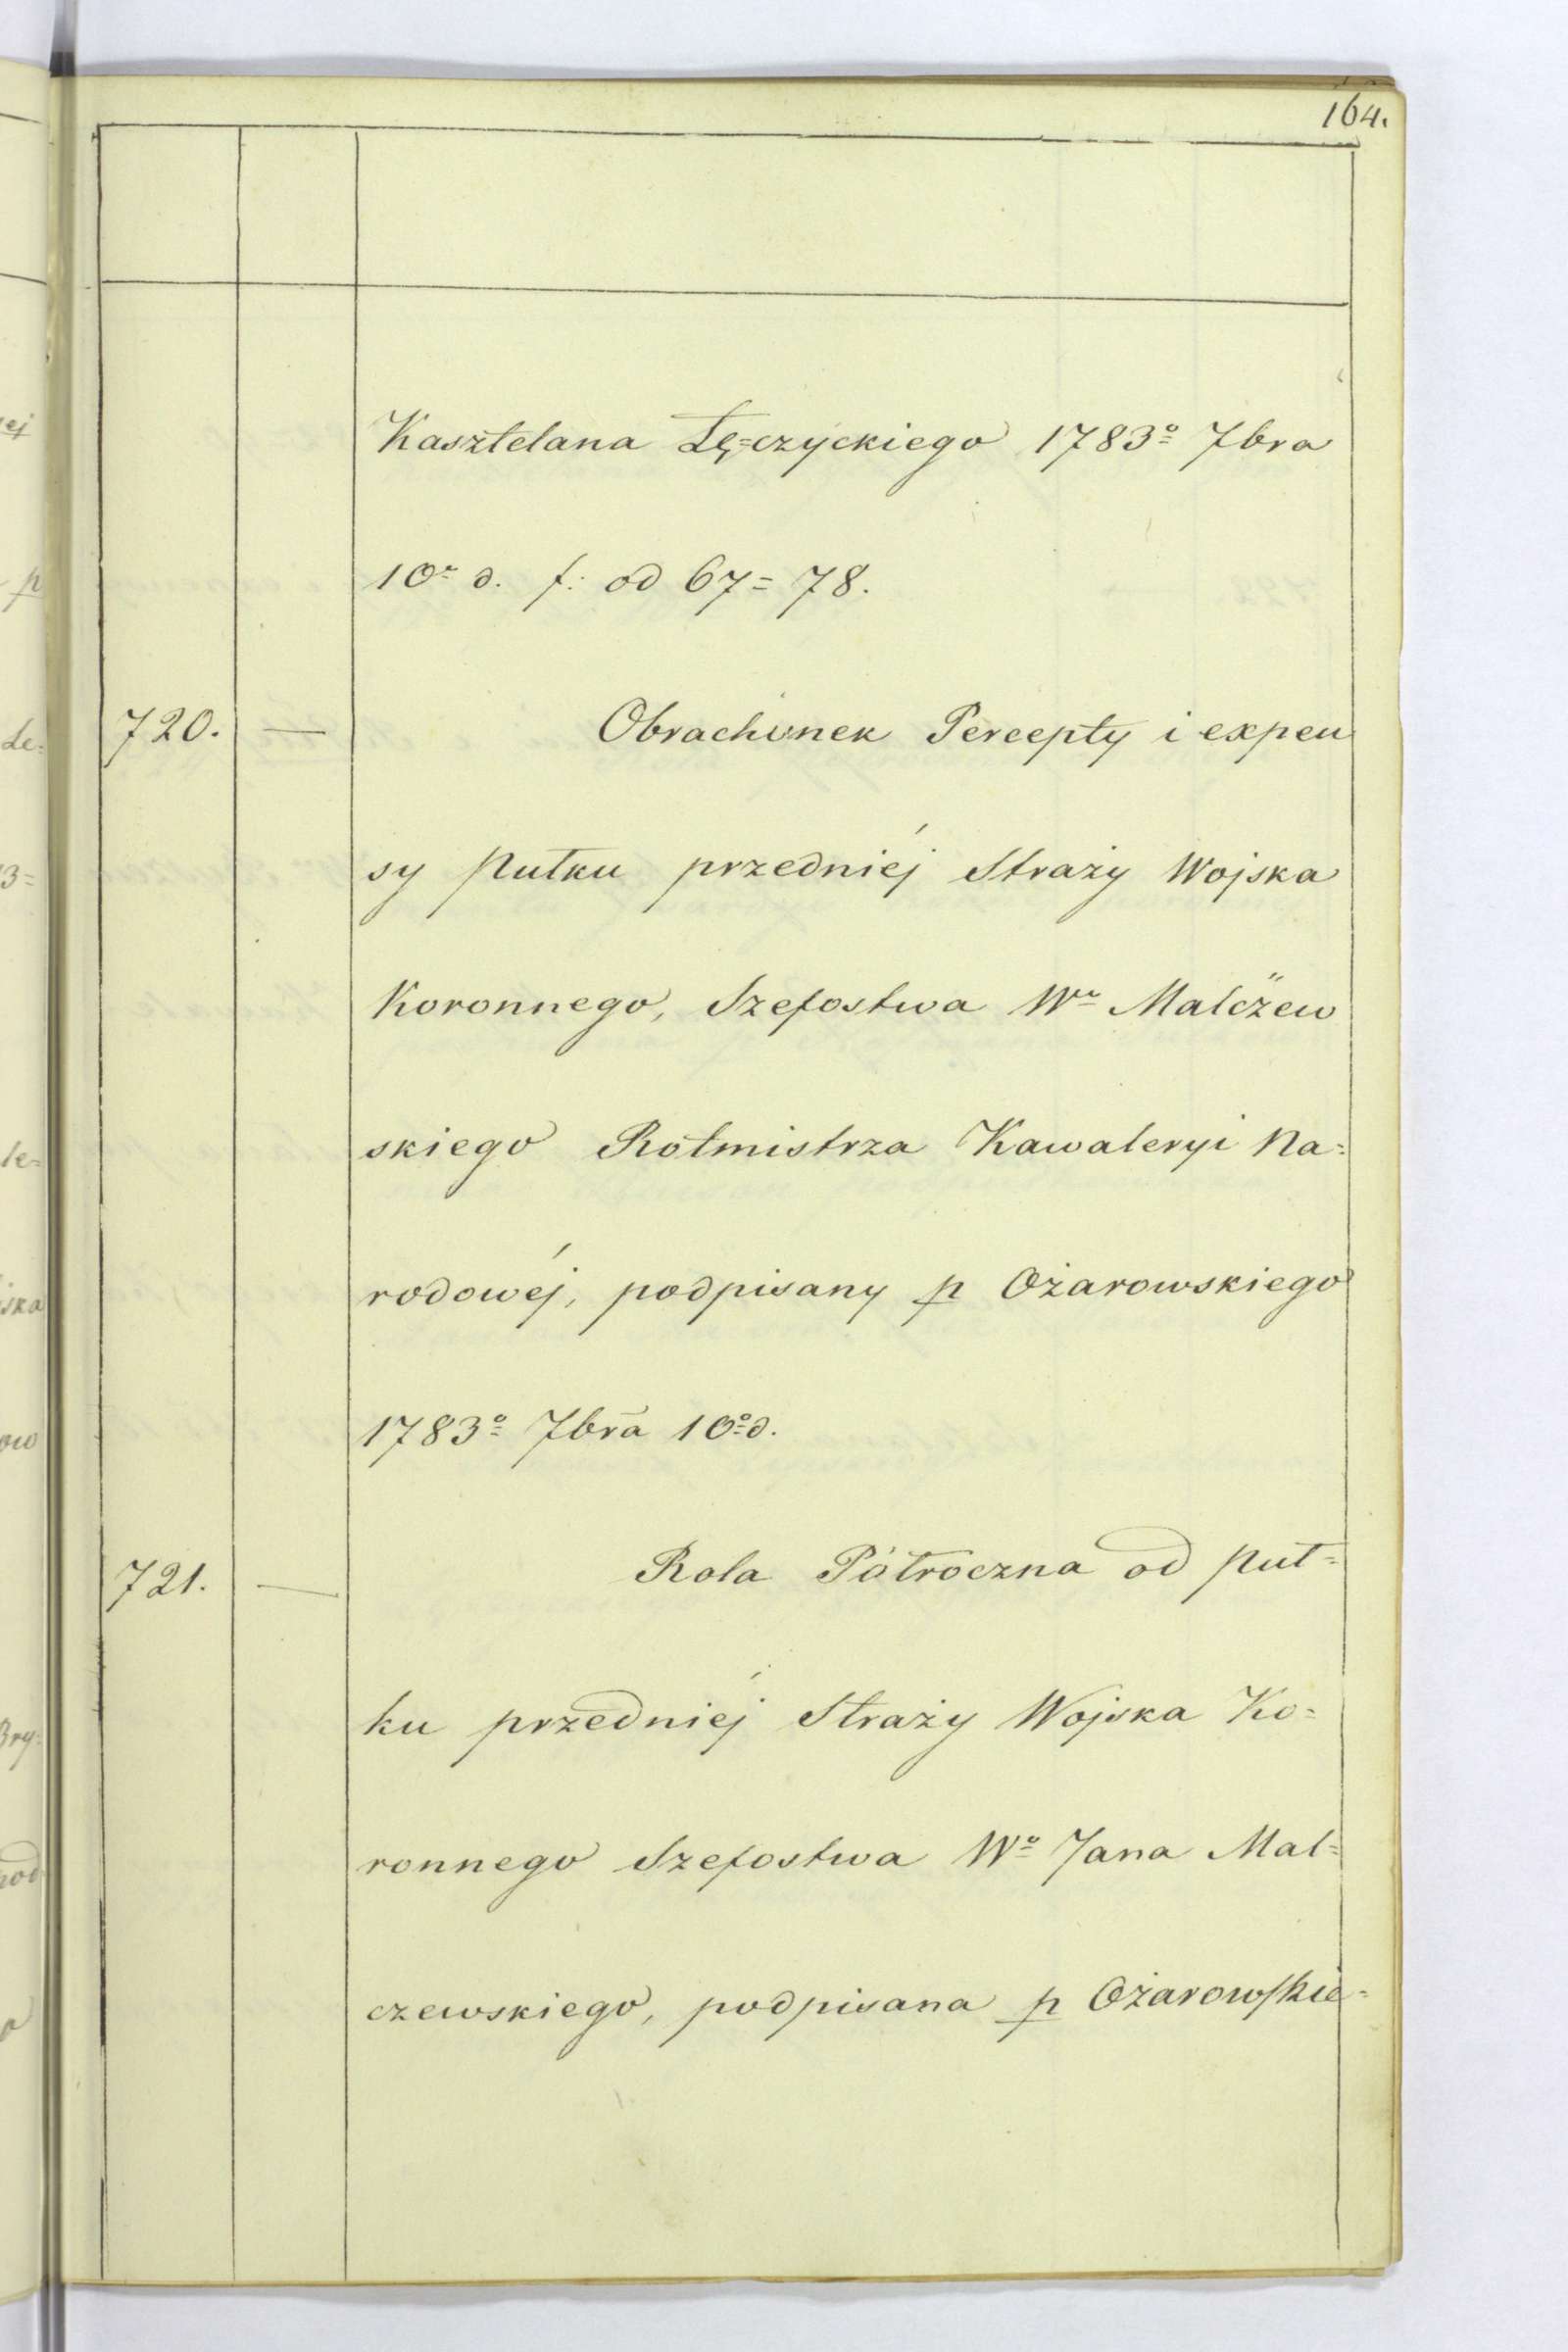 164.
Kasztelana Łę=czyckiego 1783º 7bra
10º d. f: od 67=78.
720. — Obrachunek Percepty i expen
sy Pułku przedniéj Straży Wojska
Koronnego, Szefostwa Wº Malczew
skiego Rotmistrza Kawaleryi Na=
rodowéj, podpisany p Ożarowskiego
1783º 7bra 10º d.
721. — Rola Półroczna od Puł=
ku przedniéj Straży Wojska Ko=
ronnego Szefostwa Wº Jana Mal=
czewskiego, podpisana p Ożarowskie=